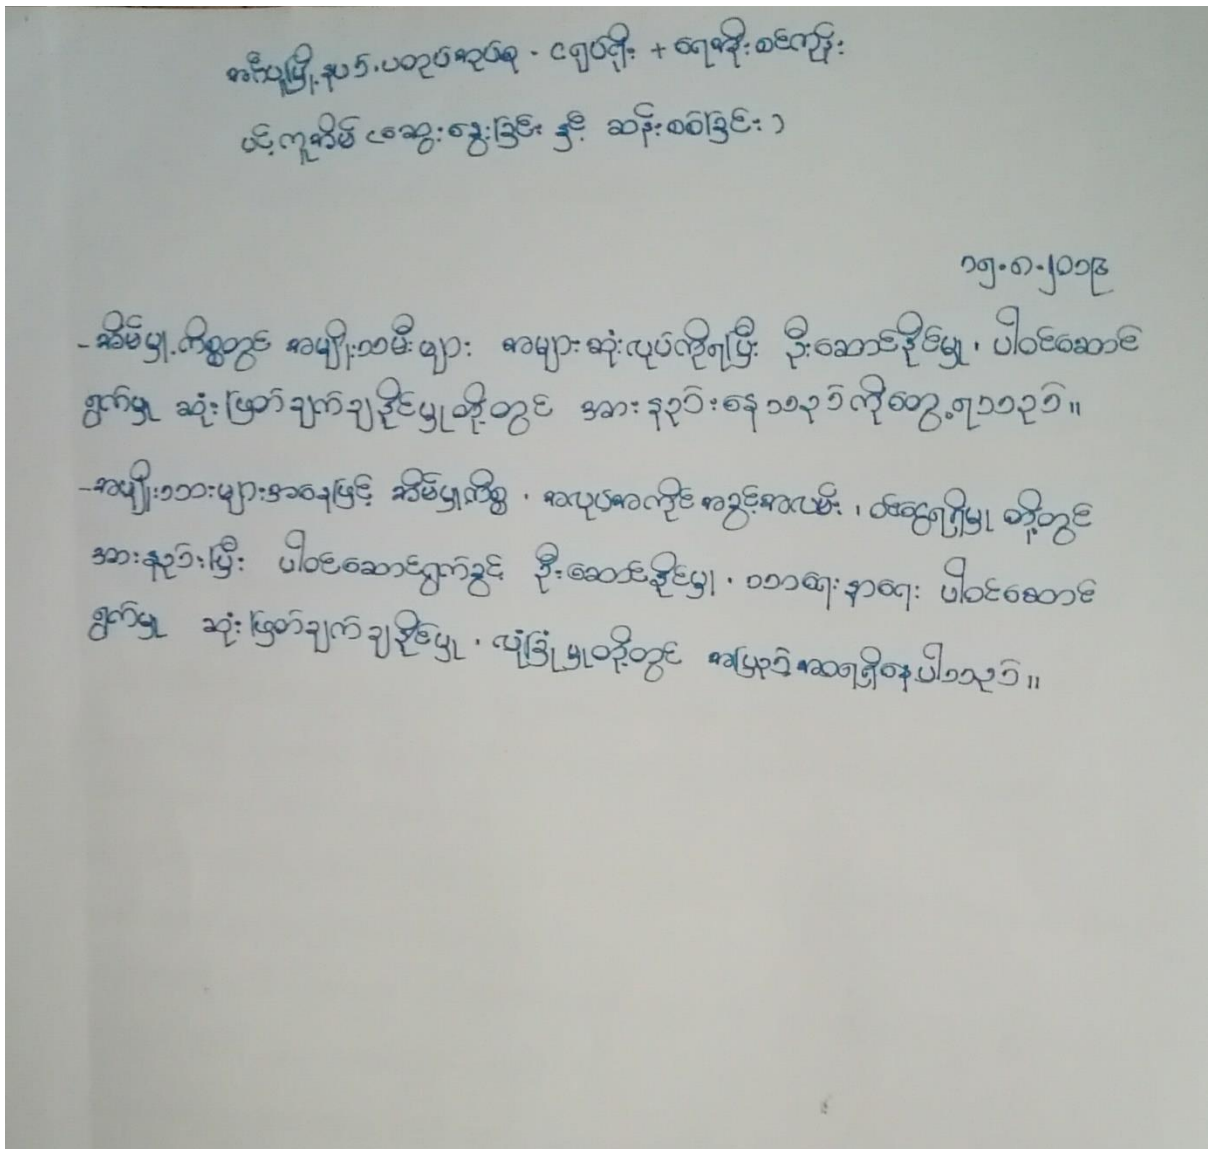 အင်္ဂပူမြို့နယ်၊ ပတုပ်အုပ်စု၊ ငရုပ်ပိုး + ရေအိုးစင်ကုန်း
ပင့်ကူအိမ် (ဆွေးနွေးခြင်း နှင့် ဆန်းစစ်ခြင်း)
၁၅.၈.၂၀၁၉
-အိမ်မှု့ကိစ္စတွင် အမျိုးသမီးများ အများဆုံးလုပ်ကိုင်ရပြီး ဦးဆောင်နိုင်မှု၊ ပါဝင်ဆောင်
ရွက်မှု ဆုံးဖြတ်ချက်ချနိုင်မှုတို့တွင် အားနည်းနေသည်ကိုတွေ့ရသည်။
-အမျိုးသားများအနေဖြင့် အိမ်မှုကိစ္စ၊ အလုပ်အကိုင်အခွင့်အလမ်း၊ ဝင်ငွေရရှိမှု တို့တွင်
အားနည်းပြီး ပါဝင်ဆောင်ရွက်ခွင့် ဦးဆောင်နိုင်မှု၊ ဘာသာရေးနာရေး ပါဝင်ဆောင်
ရွက်မှု ဆုံးဖြတ်ချက်ချနိုင်မှု၊ လုံခြုံမှုတို့တွင် အပြည့်အဝရရှိနေပါသည်။